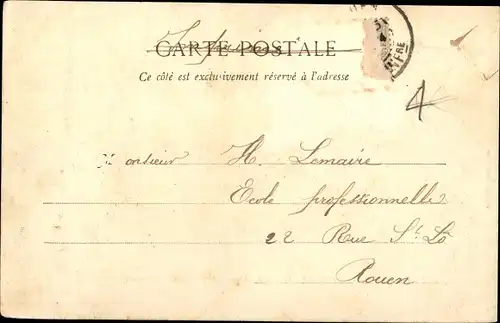 CARTE POSTALE
Ce côté est exclusivement réservé à l'adresse
4
Monsieur H. Lemaire
Ecole professionnelle
22 Rue St Lô
Rouen